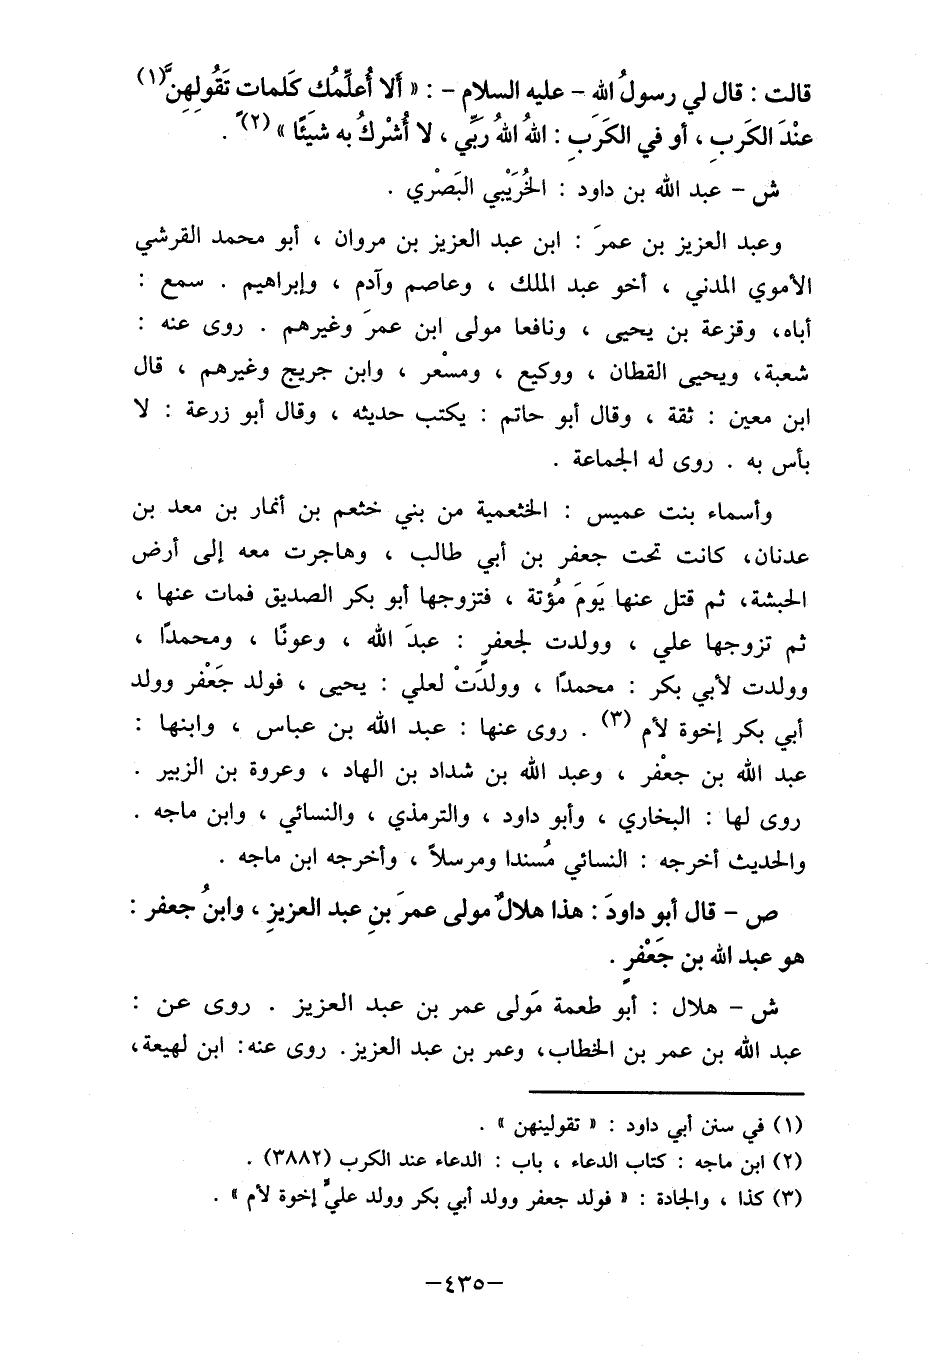 قالت : قال لي رسولُ الله – عليه السلام – : « أَلا أُعلِّمُك كَلمات تَقُولِهِنَّ (١)
عنْدَ الكَربِ ، أو في الكَرَبِ : اللهُ اللهُ رَبِّي ، لا أُشْركُ به شَيئًا » (٢) .
ش – عبد الله بن داود : الخُرَيْبي البَصْري .
وعبد العزيز بن عمرَ : ابن عبد العزيز بن مروان ، أبو محمد القرشي
الأموي المدني ، أخو عبد الملك ، وعاصم وآدم ، وإبراهيم . سمع :
أباه، وقزعة بن يحيى ، ونافعا مولى ابن عمرَ وغيرهم . روى عنه :
شعبة، ويحيى القطان ، ووكيع ، ومسْعر ، وابن جريج وغيرهم ، قال
ابن معين : ثقة ، وقال أبو حاتم : يكتب حديثه ، وقال أبو زرعة : لا
بأس به . روى له الجماعة .
وأسماء بنت عميس : الخثعمية من بني خثعم بن أنمار بن معد بن
عدنان، كانت تحت جعفر بن أبي طالب ، وهاجرت معه إلى أرض
الحبشة، ثم قتل عنها يَومَ مُؤتة ، فتزوجها أبو بكر الصديق فمات عنها ،
ثم تزوجها علي ، وولدت لجعفرٍ : عبدَ الله ، وعونًا ، ومحمدًا ،
وولدت لأبي بكر : محمدًا ، وولدَتْ لعلي : يحيى ، فولد جَعْفر وولد
أبي بكر إخوة لأم (٣) . روى عنها : عبد الله بن عباس ، وابنها :
عبد الله بن جعْفر ، وعبد الله بن شداد بن الهاد ، وعروة بن الزبير .
روى لها : البخاري ، وأبو داود ، والترمذي ، والنسائي ، وابن ماجه .
والحديث أخرجه : النسائي مُسندا ومرسلاً ، وأخرجه ابن ماجه .
ص – قال أبو داودَ : هذا هلالٌ مولى عمرَ بنِ عبد العزيزِ ، وابنُ جعفر :
هو عبد الله بن جَعْفرٍ .
ش – هلال : أبو طعمة مَولى عمر بن عبد العزيز . روى عن :
عبد الله بن عمر بن الخطاب، وعمر بن عبد العزيز. روى عنه: ابن لهيعة،
(١) في سنن أبي داود : « تقولينهن » .
(٢) ابن ماجه : كتاب الدعاء ، باب : الدعاء عند الكرب (٣٨٨٢) .
(٣) كذا ، والجادة : « فولد جعفر وولد أبي بكر وولد عليٍّ إخوة لأم » .
–٤٣٥–